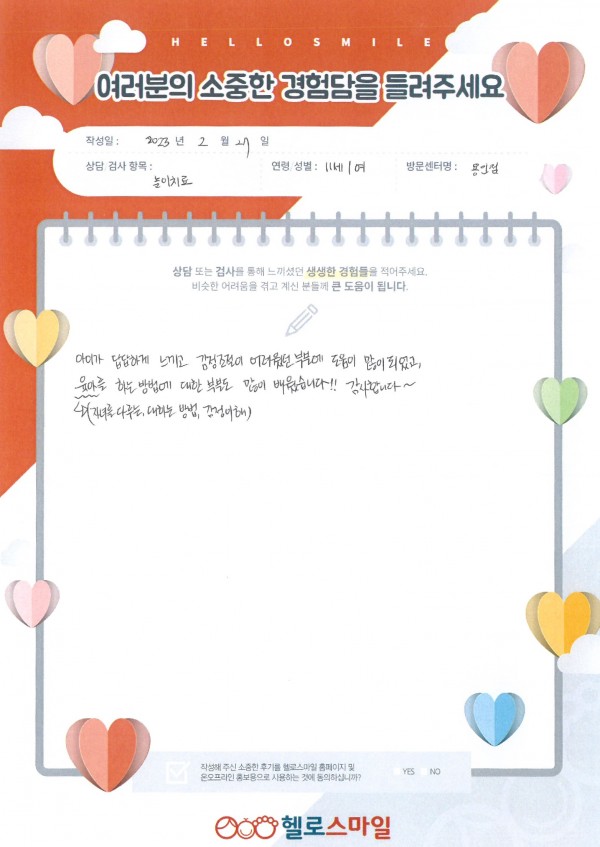 HELLOSMILE
여러분의 소중한 경험담을 들려주세요
작성일 : 2023 년 2 월 일
상담/검사 항목 : 놀이치료 연령/성별 : 11세 / 여 방문센터명 : 용인점
상담 또는 검사를 통해 느끼셨던 생생한 경험들을 적어주세요.
비슷한 어려움을 겪고 계신 분들께 큰 도움이 됩니다.
아이가 답답하게 느끼고 감정조절이 어려웠던 부분에 도움이 많이 되었고,
육아를 하는 방법에 대한 부분도 많이 배웠습니다!! 감사합니다~
(자녀를 다루는, 대하는 방법, 감정이해)
작성해 주신 소중한 후기를 헬로스마일 홈페이지 및
온오프라인 홍보용으로 사용하는 것에 동의하십니까? YES NO
헬로스마일